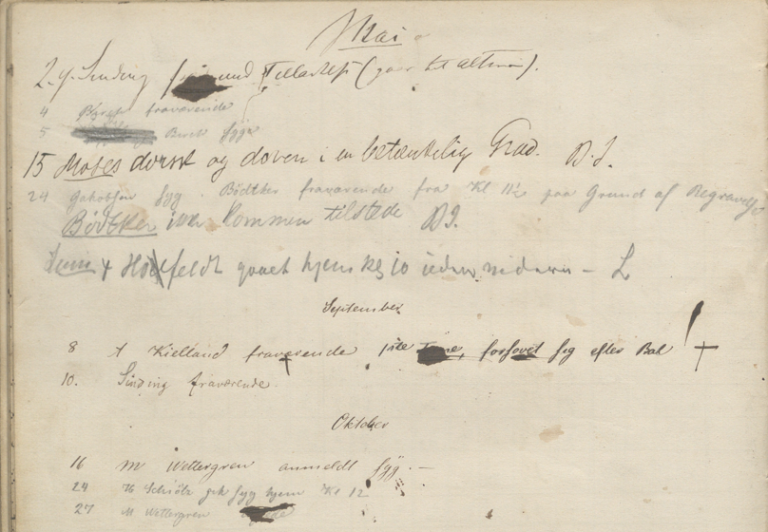 Mai
2. G. Sinding Tellarkesi (gaar til altens).
4 fraværende
5 Buck syg
15 Moses dorsk og doven i en betænkelig Grad. B. J.
24 Jakobsen syg. Bödtker fraværende fra Kl 11½ paa Grund af Begravelse
Bödtker ikke kommen tilstede B. J.
feldt gaaet hjem kl 10 uden videre – L
September
8 A Kielland fraværende 1ste Time, forsovet sig efter Bal !
10. Sinding fraværende
Oktober
16 M Wettergren anmeldt syg. –
24 Th Schiötz gik syg hjem Kl 12
27 M Wettergren